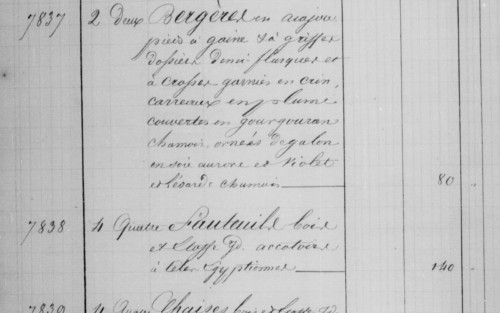 7837 2 Deux Bergères en acajou
pieds à gaine & à griffes
dossiers demi flasques et
à crosses garnies en crin,
carreaux en plume
couvertes en gourgouran
chamois, ornées de galon
en soie aurore et violet
et lézarde chamois 80
7838 4 Quatre Fauteuils bois
et Etoffe Jd. accotoirs
à têtes Egyptiennes 140
7839 4 Chaises bois et